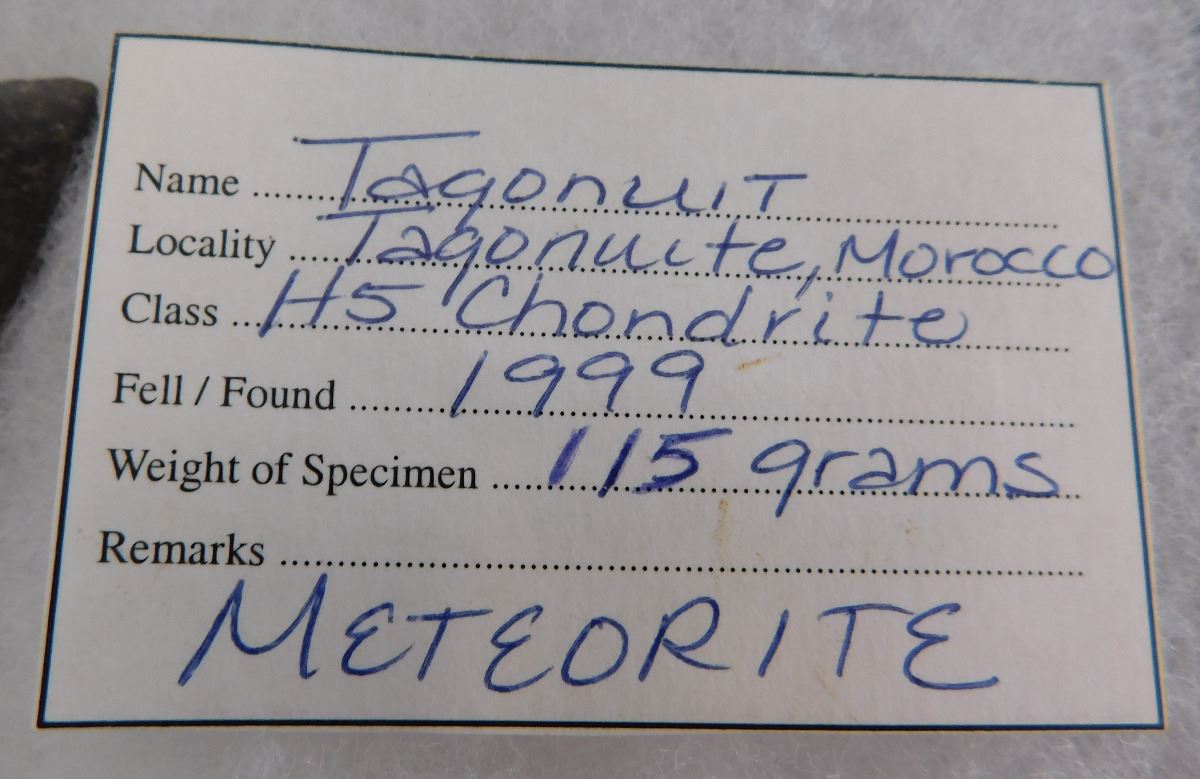 Name ........ Tagonuit
Locality .... Tagonuite, Morocco
Class ... H5 Chondrite
Fell / Found ......... 1999
Weight of Specimen ...... 115 grams
Remarks ........................................
METEORITE